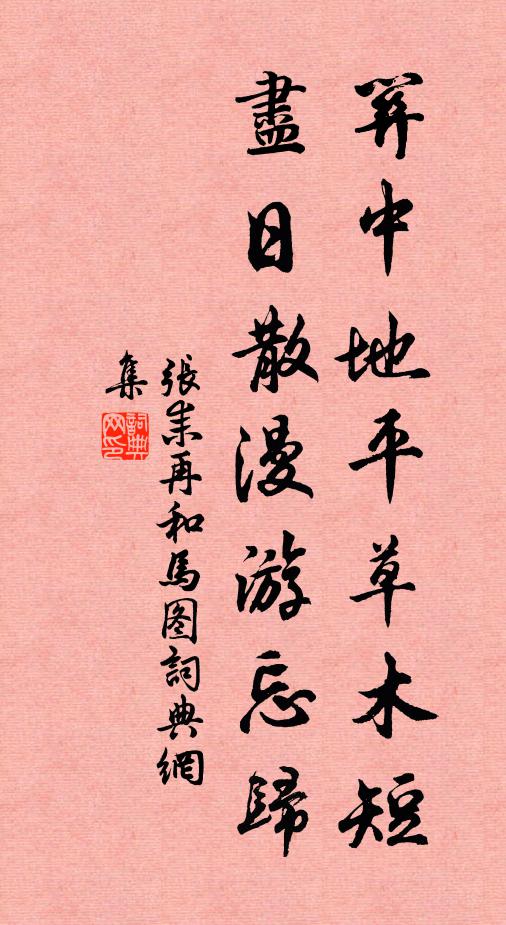 关中地平草木短
盡日散漫游忘歸
張耒再和馬图詞典網
集
詞典
网印